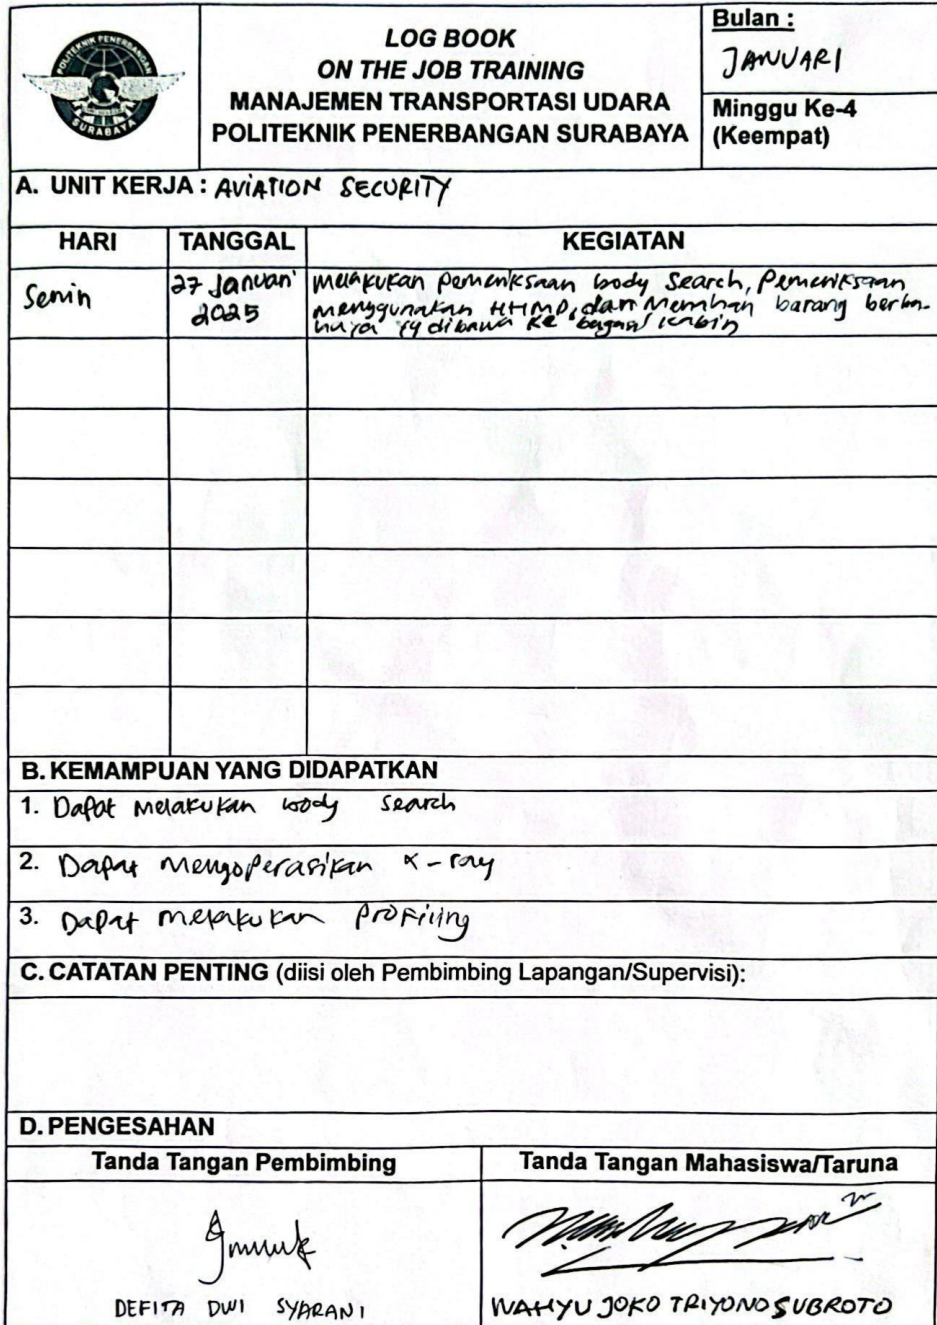 POLITEKNIK PENERBANGAN
SURABAYA
LOG BOOK
ON THE JOB TRAINING
MANAJEMEN TRANSPORTASI UDARA
POLITEKNIK PENERBANGAN SURABAYA
Bulan :
JANUARI
Minggu Ke-4
(Keempat)
A. UNIT KERJA : AVIATION SECURITY
HARI TANGGAL KEGIATAN
Senin 27 Januari 2025 Melakukan pemeriksaan body search, Pemeriksaan
menggunakan HHMD, dan barang berba-
haya yg dibawa ke bagasi/kabin
B. KEMAMPUAN YANG DIDAPATKAN
1. Dapat melakukan body search
2. Dapat mengoperasikan x-ray
3. Dapat melakukan profiling
C. CATATAN PENTING (diisi oleh Pembimbing Lapangan/Supervisi):
D. PENGESAHAN
Tanda Tangan Pembimbing Tanda Tangan Mahasiswa/Taruna
DEFITA DWI SYARANI WAHYU JOKO TRIYONO SUBROTO